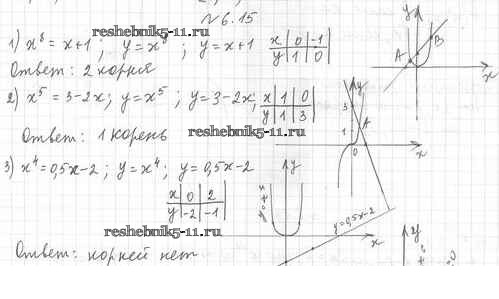 № 6.15
reshebnik5-11.ru
1) x⁸ = x+1 ; y = x⁸ ; y = x+1
x | 0 | -1
y | 1 | 0
Ответ: 2 корней
2) x⁵ = 3-2x ; y = x⁵ ; y = 3-2x ;
x | 1 | 0
y | 1 | 3
Ответ: 1 корень
reshebnik5-11.ru
3) x⁴ = 0,5x-2 ; y = x⁴ ; y = 0,5x-2
x | 0 | 2
y | -2 | -1
reshebnik5-11.ru
Ответ: корней нет
y
A
B
x
y
3
1
A
0
x
y
y=0,5x-2
x
y